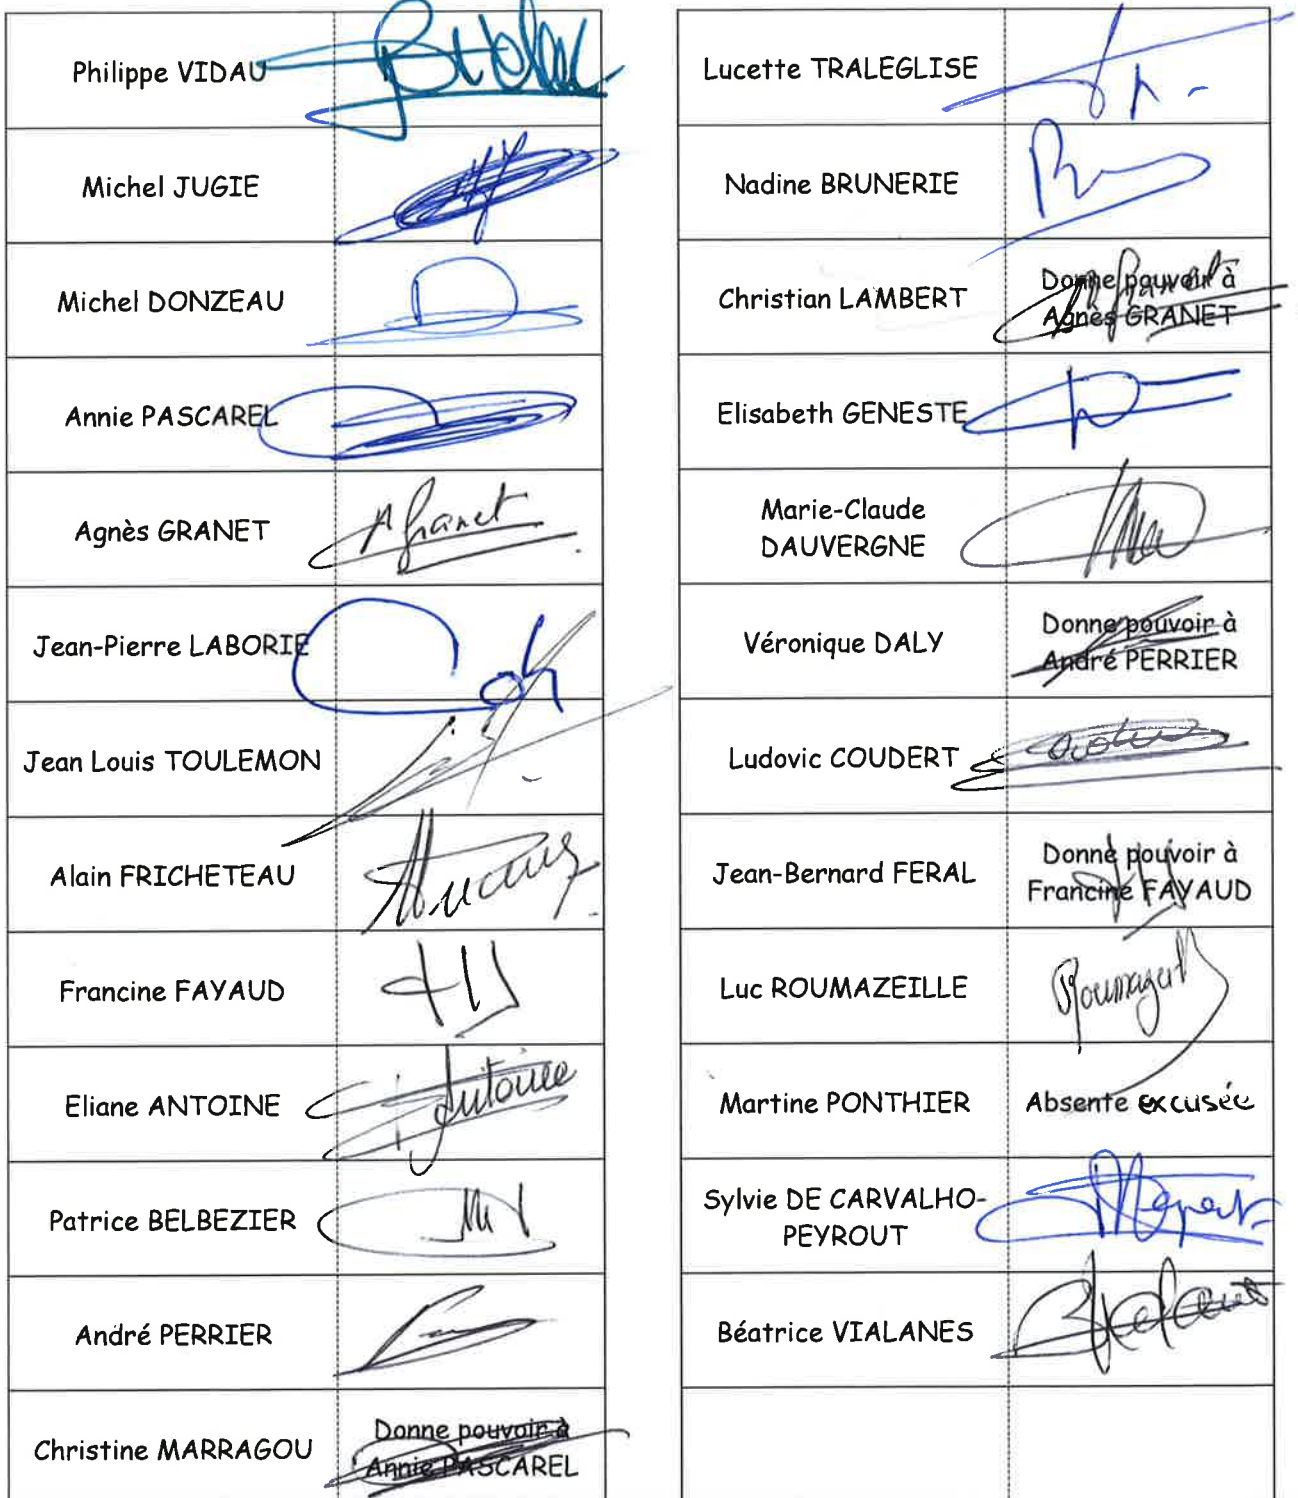 Philippe VIDAU
Michel JUGIE
Michel DONZEAU
Annie PASCAREL
Agnès GRANET
A Granet
Jean-Pierre LABORIE
Jean Louis TOULEMON
Alain FRICHETEAU
Francine FAYAUD
Eliane ANTOINE
Antoine
Patrice BELBEZIER
André PERRIER
Christine MARRAGOU
Donne pouvoir à
Annie PASCAREL
Lucette TRALEGLISE
Nadine BRUNERIE
Christian LAMBERT
Donne pouvoir à
Agnès GRANET
Elisabeth GENESTE
Marie-Claude
DAUVERGNE
Véronique DALY
Donne pouvoir à
André PERRIER
Ludovic COUDERT
Jean-Bernard FERAL
Donne pouvoir à
Francine FAYAUD
Luc ROUMAZEILLE
Martine PONTHIER
Absente excusée
Sylvie DE CARVALHO-
PEYROUT
Béatrice VIALANES